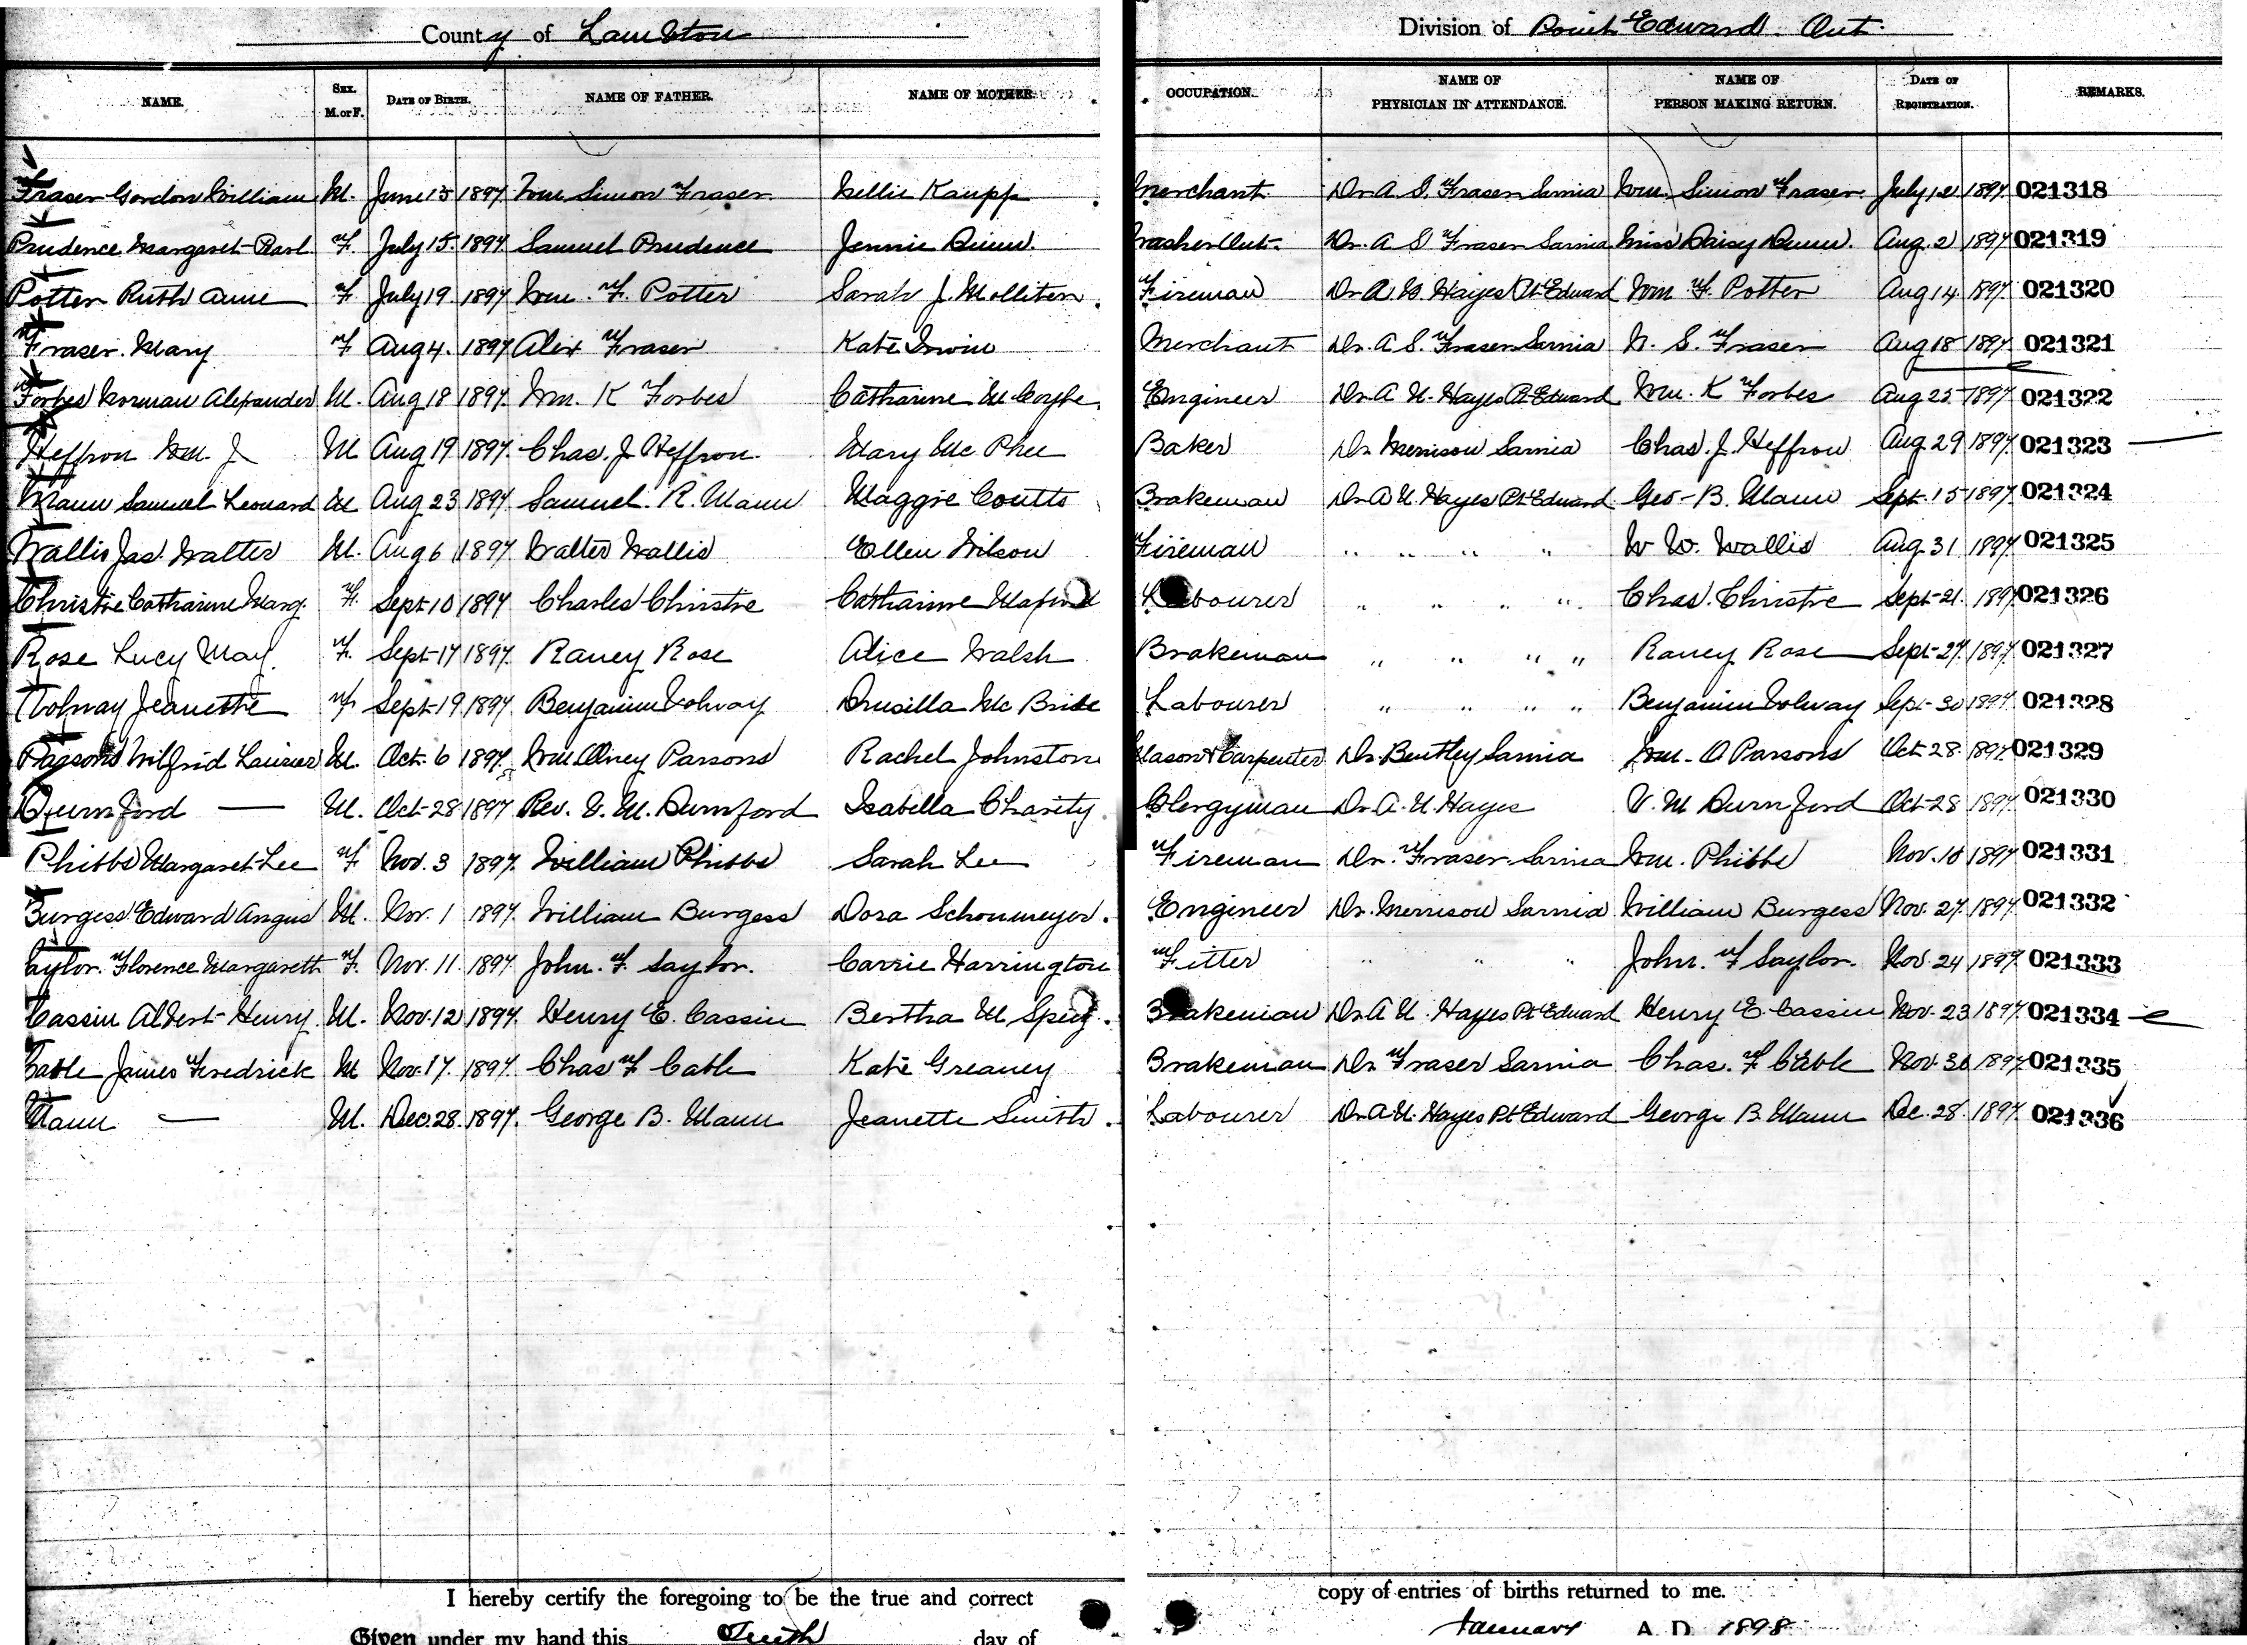 County of Lambton Division of Point Edward Ont.
NAME. SEX. M. or F. DATE OF BIRTH. NAME OF FATHER. NAME OF MOTHER. OCCUPATION. NAME OF PHYSICIAN IN ATTENDANCE. NAME OF PERSON MAKING RETURN. DATE OF REGISTRATION. REMARKS.
Fraser Gordon William M. June 15 1897 Wm. Simon Fraser Nellie Kaupp Merchant Dr. A. S. Fraser Sarnia Wm. Simon Fraser July 12 1897 021318
Prudence Margaret Pearl F. July 15. 1897 Samuel Prudence Jennie Dunn. Dr. A S Fraser Sarnia Miss Daisy Dunn. Aug. 2 1897 021319
Potter Ruth Anne F July 19 1897 Wm. F. Potter Sarah J Molliten Fireman Dr. A. U. Hayes Pt Edward Wm F. Potter Aug 14 1897 021320
Fraser. Mary F Aug 4. 1897 Alex Fraser Kate Irwin Merchant Dr. A S. Fraser Sarnia S. Fraser Aug 18 1897 021321
Forbes Norman Alexander M. Aug 18 1897. Wm. K Forbes Catharine Engineer Dr. A U. Hayes Pt Edward Wm. K Forbes Aug 25 1897 021322
Heffron Wm. J M Aug 19 1897. Chas. J Heffron Mary Mc Phee Baker Dr. Merrison Sarnia Chas. J. Heffron Aug 29 1897. 021323
Mann Samuel Leonard M Aug 23 1897. Samuel. R. Mann Maggie Coutts Brakeman Dr. A U. Hayes Pt Edward Geo- B. Mann Sept. 15 1897. 021324
Wallis Jas. Walter M. Aug 6 1897. Walter Wallis Ellen Wilson Fireman " " " " W. W. Wallis Aug. 31 1897. 021325
Christie Catharine Marg. F. Sept 10 1897 Charles Christie Catharine Labourer " " " " Chas. Christie Sept-21. 1897. 021326
Rose Lucy May. F. Sept-17 1897. Raney Rose Alice Walsh Brakeman " " " " Raney Rose Sept-27. 1897 021327
Volway Jeanette F Sept-19 1897 Benjamin Volway Drusilla Mc Bride Labourer " " " " Benjamin Volway Sept-30 1897. 021328
Parsons Wilfrid Laurier M. Oct. 6 1897. Wm Olney Parsons Rachel Johnston Mason & Carpenter Dr. Bentley Sarnia Wm. O Parsons Oct 28 1897. 021329
Durnford — M. Oct-28 1897 Rev. V. M. Durnford Isabella Charity Clergyman Dr. A. U. Hayes V. M Durnford Oct-28 1897. 021330
Phibbs Margaret Lee F Nov. 3 1897. William Phibbs Sarah Lee Fireman Dr. Fraser Sarnia Wm. Phibbs Nov. 10 1897 021331
Burgess Edward Angus M. Nov. 1 1897. William Burgess Dora Schonmeyer. Engineer Dr. Merrison Sarnia William Burgess Nov. 27. 1897. 021332
Saylor. Florence Margarett F. Nov. 11. 1897 John. F. Saylor. Carrie Harrington Fitter " " " John. F Saylor. Nov. 24 1897. 021333
Cassin Albert Henry M. Nov. 12 1897. Henry E. Cassin Bertha M Brakeman Dr. A U. Hayes Pt Edward Henry E Cassin Nov. 23 1897. 021334
Cable James Fredrick M Nov. 17. 1897. Chas F Cable Kate Greaney Brakeman Dr. Fraser Sarnia Chas. F Cable Nov. 30 1897 021335
Mann — M. Dec. 28. 1897. George B. Mann Jeanette Smith. Labourer Dr. A U. Hayes Pt Edward George B. Mann Dec. 28. 1897. 021336
I hereby certify the foregoing to be the true and correct copy of entries of births returned to me.
Given under my hand this Tenth day of January A. D. 1898